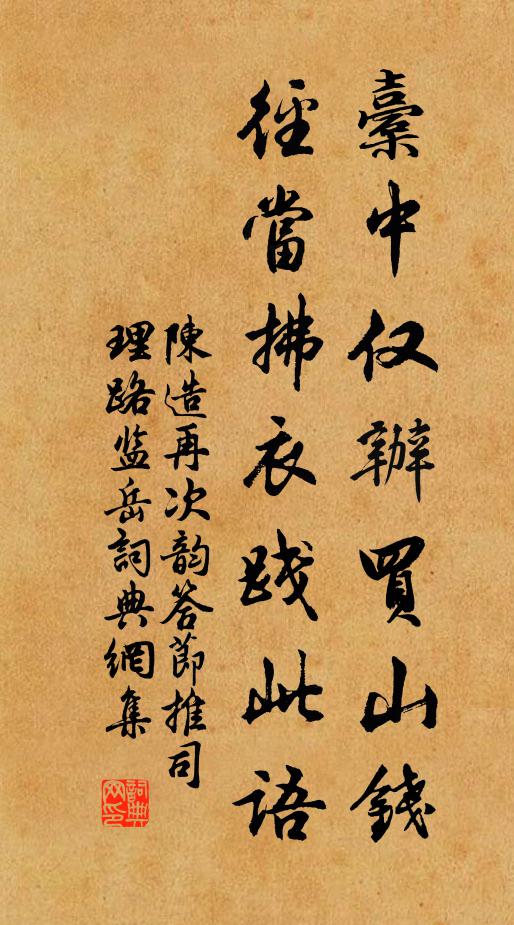 橐中仅辦買山錢
徑當拂衣踐此語
陳造再次韵答節推司
理路监岳詞典網集
詞典
网印